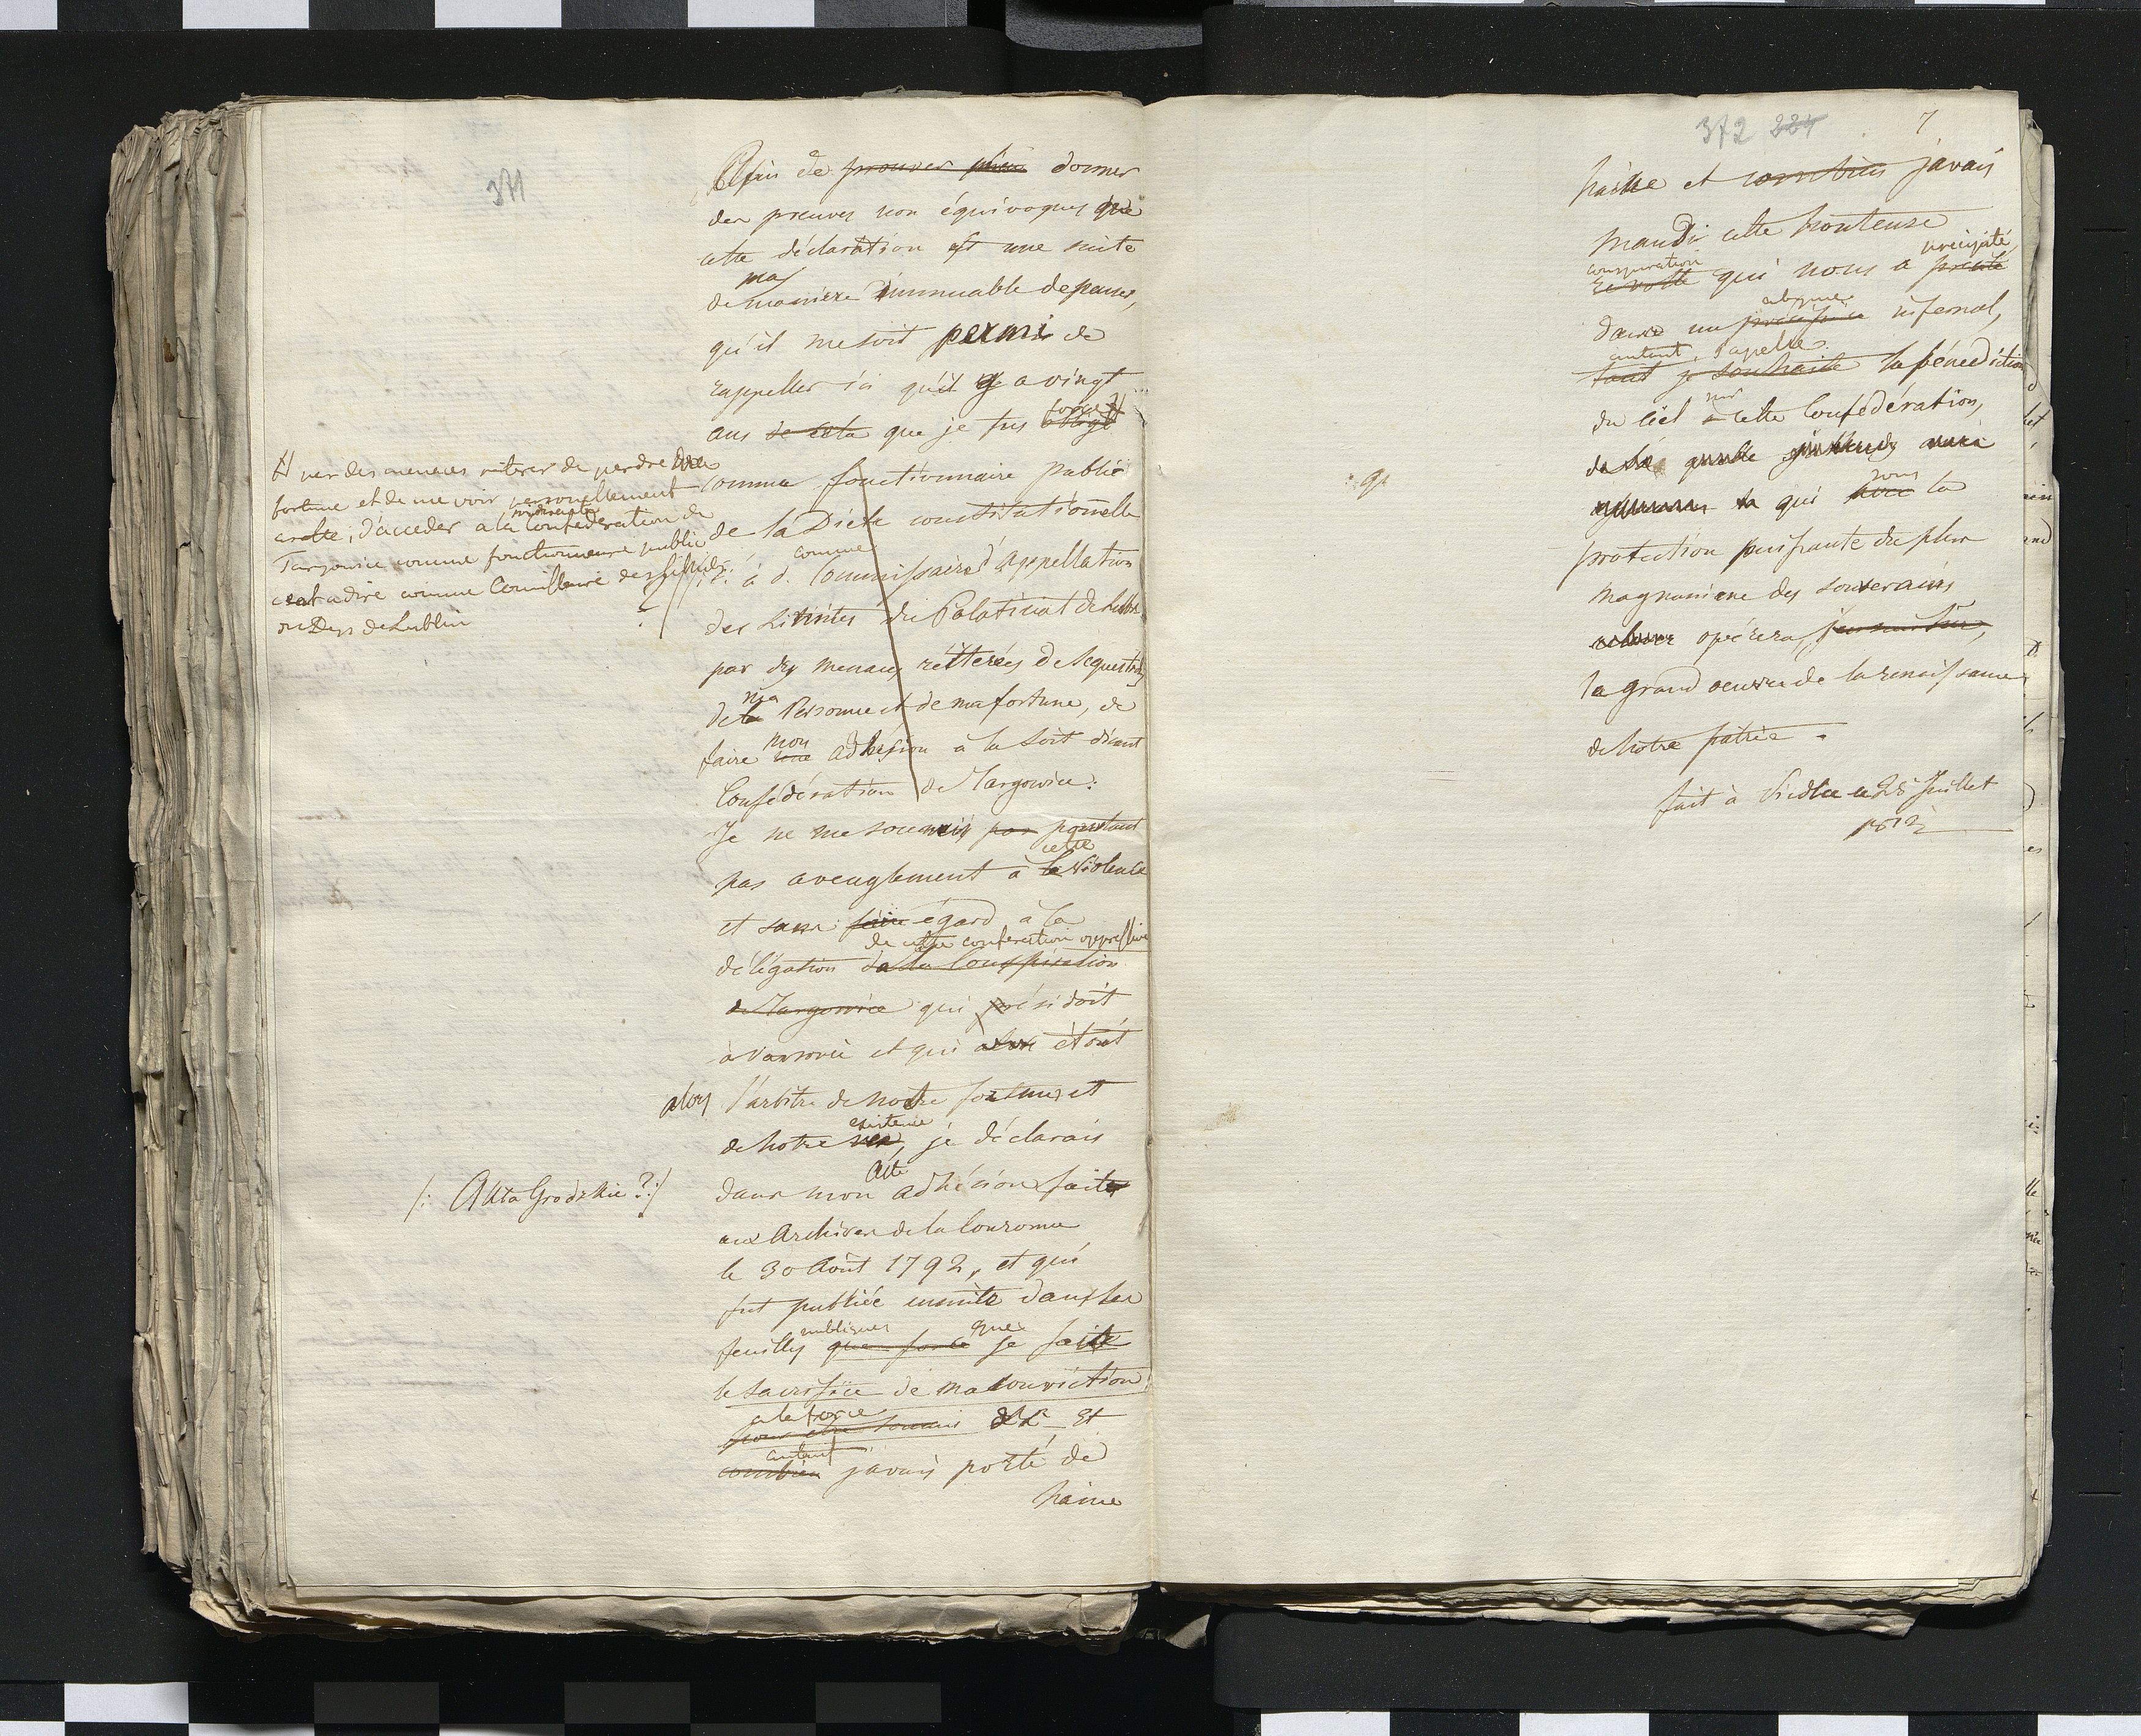 371
Afin de prouver donner
des preuves non équivoques que
cette déclaration est une suite
ma
de maniere immuable de penser,
qu'il me soit permi de
rappeller ici qu'il y a vingt
forcé #
ans de cela que je fus obligé
# par des menaces de perdre ma
fortune et de me voir personellement
arette, d'acceder a la Confederation de
Targowice comme fonctionnaire public
c'est a dire comme Conseillere des
de Lublin
comme fonctionnaire public
de la Diete constitutionnelle
comme
c. à d. Commissaire d'Appellation
des Limites du Palatinat de Lublin
par des menaces réiterées de sequestres
ma
de la Personne et de ma fortune, de
mon
faire une adhésion à la soit disant
Confédération de Targowice:
Je ne me soumis pas pourtant
cette
pas aveuglement à la violence
et sans faire égard à la
de cette confederation oppressive
délégation de la Conspiration
de Targowice qui présidoit
à Varsovie et qui alors étoit
alors l'arbitre de notre fortune et
existence
de notre vie, je déclarais
Acte
/: Akta Grodzkie ?:/
dans mon adhésion faite
aux Archives de la Couronne
le 30 Août 1792, et qui
fut publiée ensuite dans les
publiques que
feuilles que forcé je fais
le sacrifice de ma conviction
a la force
pour être soumis &c. Et
autant
combien j'avais porté de
haine
372 224 7
haine et combien j'avais
maudi cette honteuse
conspiration precipité
revolte qui nous a
abyme
dans un précipice infernal,
autant j'apelle
tant je souhaite la bénédiction
sur
du ciel a cette Confédération,
sous
qui avec la
protection puissante du plus
magnanime des souverains
opérera, j'en suis sur,
le grand oeuvre de la renaissance
de notre patrie.
fait à Siedlce ce 28 Juillet
1812